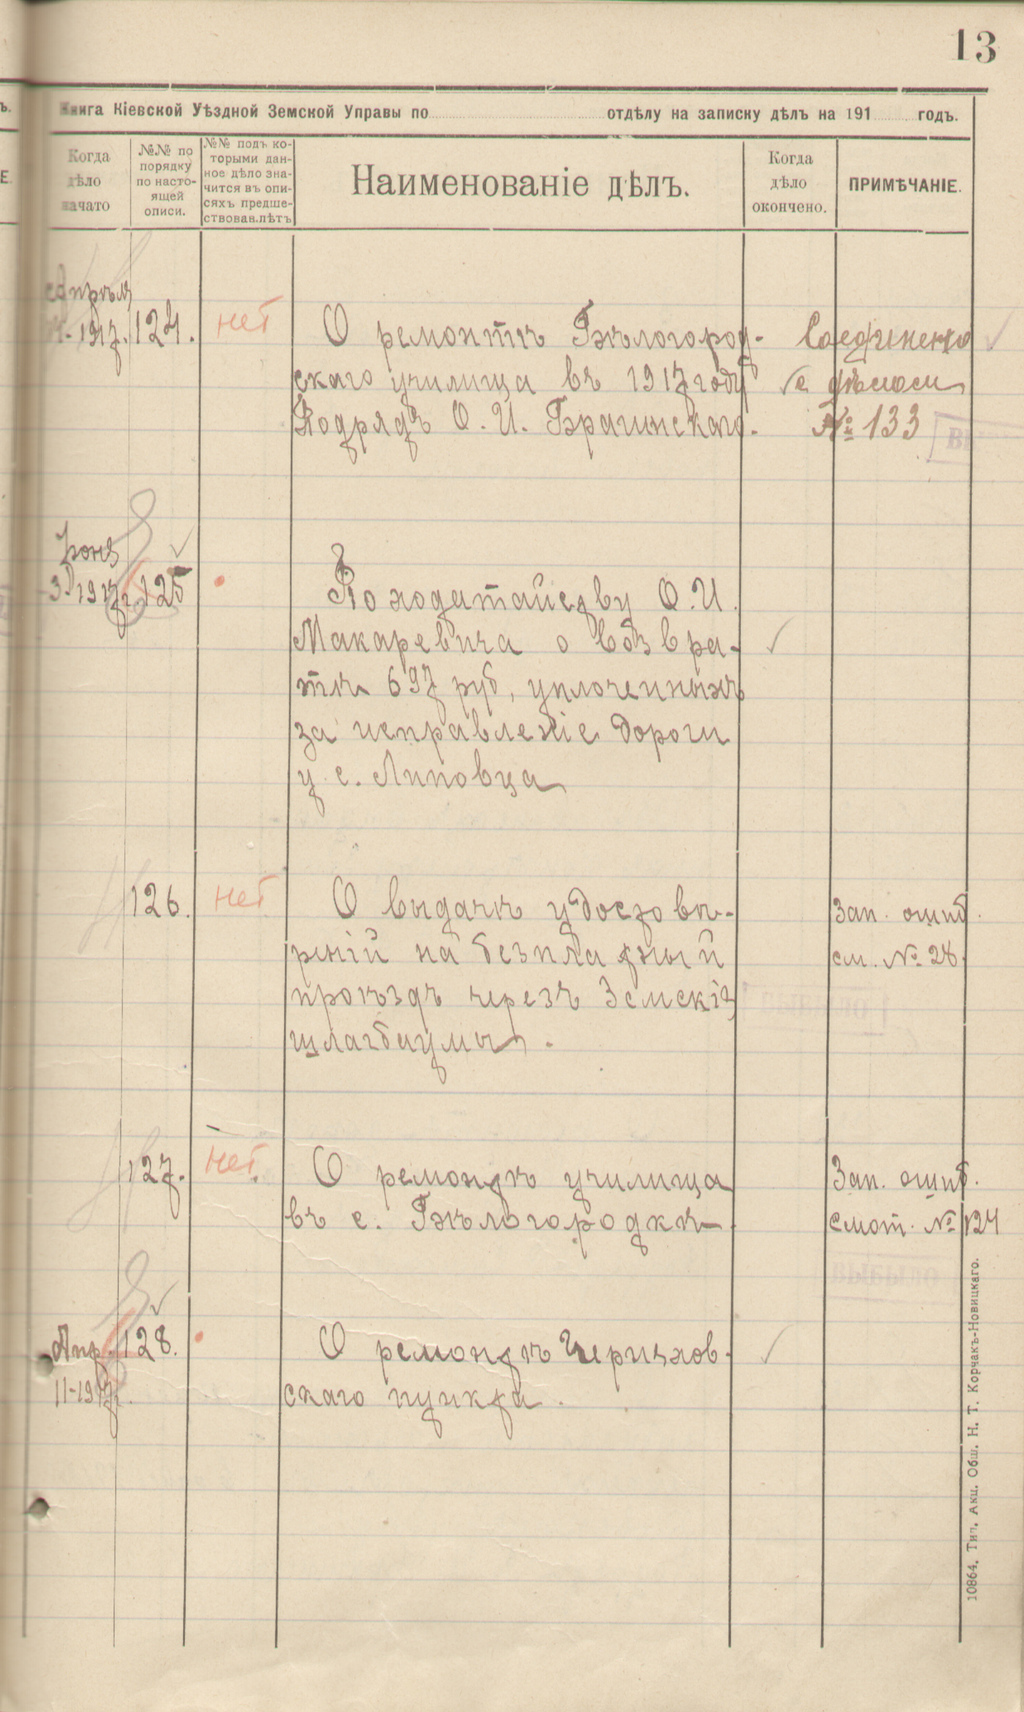 13
Книга Кіевской Уѣздной Земской Управы по отдѣлу на записку дѣлъ на 191 годъ.
Когда дѣло начато
№№ по порядку по настоящей описи.
№№ подъ которыми данное дѣло значится въ описяхъ предшествовав.лѣтъ
Наименованіе дѣлъ.
Когда дѣло окончено.
ПРИМѢЧАНІЕ.
Апрѣля
1917г. 124. нет О ремонтѣ Бѣлогород- Соединено
скаго училища въ 1917 году с дѣлом
Подрядъ О. И. Брагинскаго. № 133
Іюня
3 1917г. 125 По ходатайству О. И.
Макаревича о возвра-
тѣ 697 руб, уплоченныхъ
за исправленіе дороги
у с. Липовца
126. нет О выдачѣ удостовѣ- Зап. ошиб.
реній на безплатный см. № 28.
проѣздъ черезъ Земскія
шлагбаумы.
127. нет. О ремонтѣ училища Зап. ошиб.
въ с. Бѣлогородкѣ Смот. № 124
Апр. 128. О ремонтѣ
11-1917г. скаго пункта.
10864. Тип. Акц. Общ. Н. Т. Корчакъ-Новицкаго.